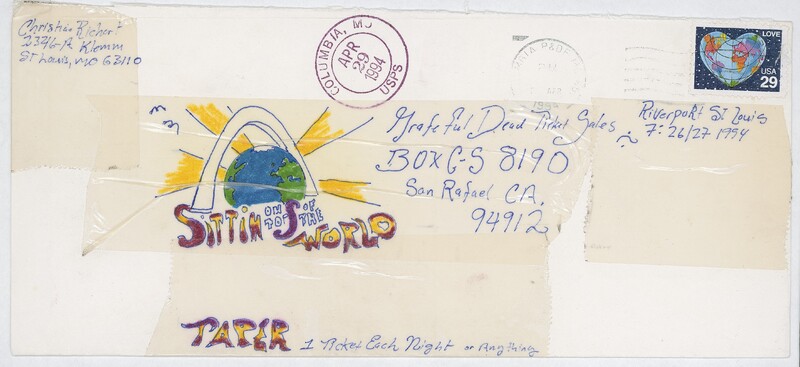 Christian Richert
2326-A Klemm
St Louis, MO 63110
COLUMBIA, MO
APR
29
1994
USPS
LOVE
USA
29
Grateful Dead Ticket Sales
BOX C-S 8190
San Rafael CA.
94912
Riverport St Louis
7-26/27 1994
SITTIN ON TOP OF THE WORLD
TAPER
1 Ticket Each Night or Anything